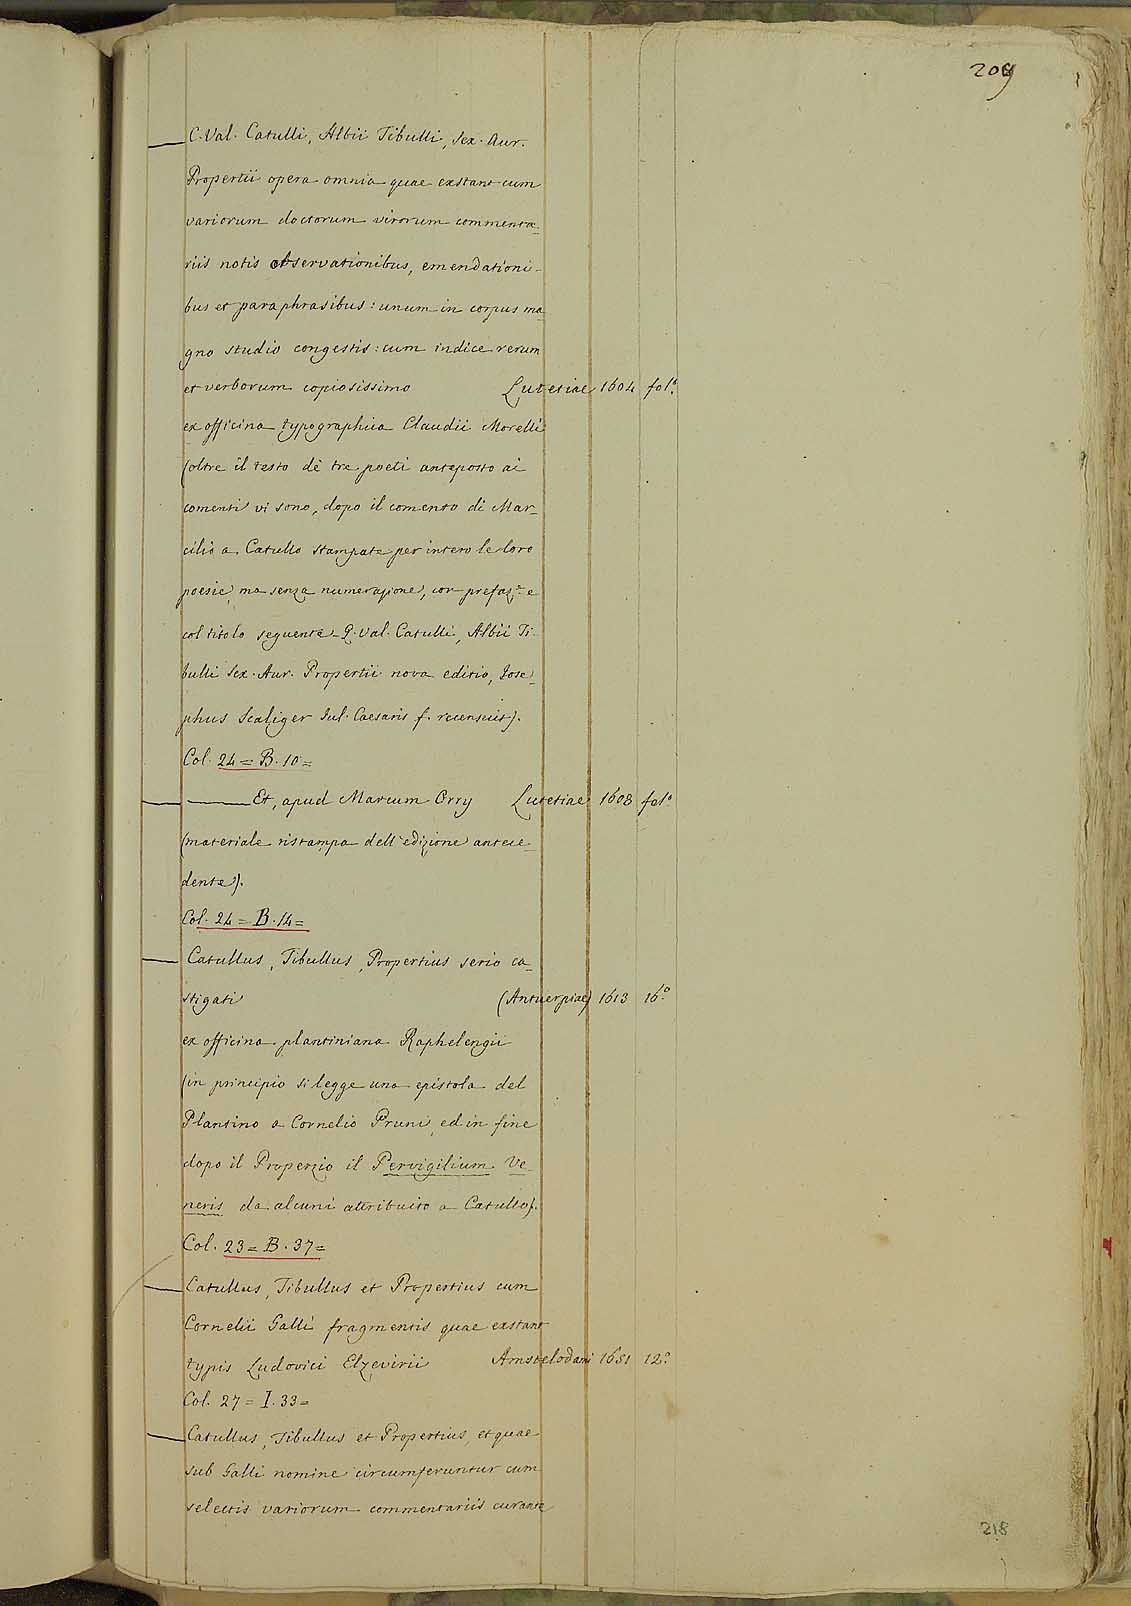 209
— C. Val. Catulli, Albii Tibulli, Sex. Aur.
Propertii opera omnia quae exstant cum
variorum doctorum virorum commenta-
riis notis observationibus, emendationi-
bus et paraphrasibus: unum in corpus ma
gno studio congestis: cum indice rerum
et verborum copiosissimo Lutetiae 1604 fol.º
ex officina typographica Claudii Morelli
(oltre il testo dè tre poeti anteposto ai
comenti vi sono, dopo il comento di Mar-
cilio a Catullo stampate per intero le loro
poesie, ma senza numerazione, con prefaz.e e
col titolo seguente Q. Val. Catulli, Albii Ti-
bulli Sex. Aur. Propertii nova editio, Jose-
phus Scaliger Jul. Caesaris f. recensuit).
Col. 24 = B. 10 =
— ——— Et, apud Marcum Orry Lutetiae 1608 fol.º
(materiale ristampa dell'edizione antece-
dente).
Col. 24 = B. 14 =
— Catullus, Tibullus, Propertius serio ca-
stigati (Antuerpiae) 1613 16.º
ex officina plantiniana Raphelengii
(in principio si legge una epistola del
Plantino a Cornelio Pruni, ed in fine
dopo il Properzio il Pervigilium Ve-
neris da alcuni attribuito a Catullo).
Col. 23 = B. 37 =
— Catullus, Tibullus et Propertius cum
Cornelii Galli fragmentis quae exstant
typis Ludovici Elzevirii Amstelodami 1651 12.º
Col. 27 = I. 33 =
— Catullus, Tibullus et Propertius, et quae
sub Galli nomine circumferuntur cum
selectis variorum commentariis curante
218